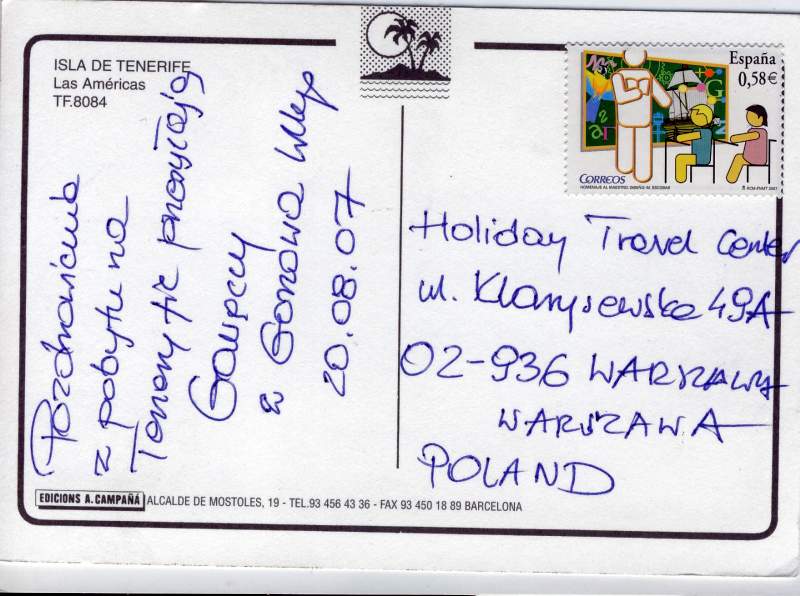 ISLA DE TENERIFE
Las Américas
TF.8084
Pozdrowienia
z pobytu na
Teneryfie przesyłają
z Gorzowa Wlkp
20.08.07
España
0,58€
CORREOS
HOMENAJE AL MAESTRO. DISEÑO: M. ESCOBAR
Holiday Travel Center
ul. Klarysewska 49A
02-936 WARSZAWA
WARSZAWA
POLAND
EDICIONS A. CAMPAÑÁ ALCALDE DE MOSTOLES, 19 - TEL.93 456 43 36 - FAX 93 450 18 89 BARCELONA